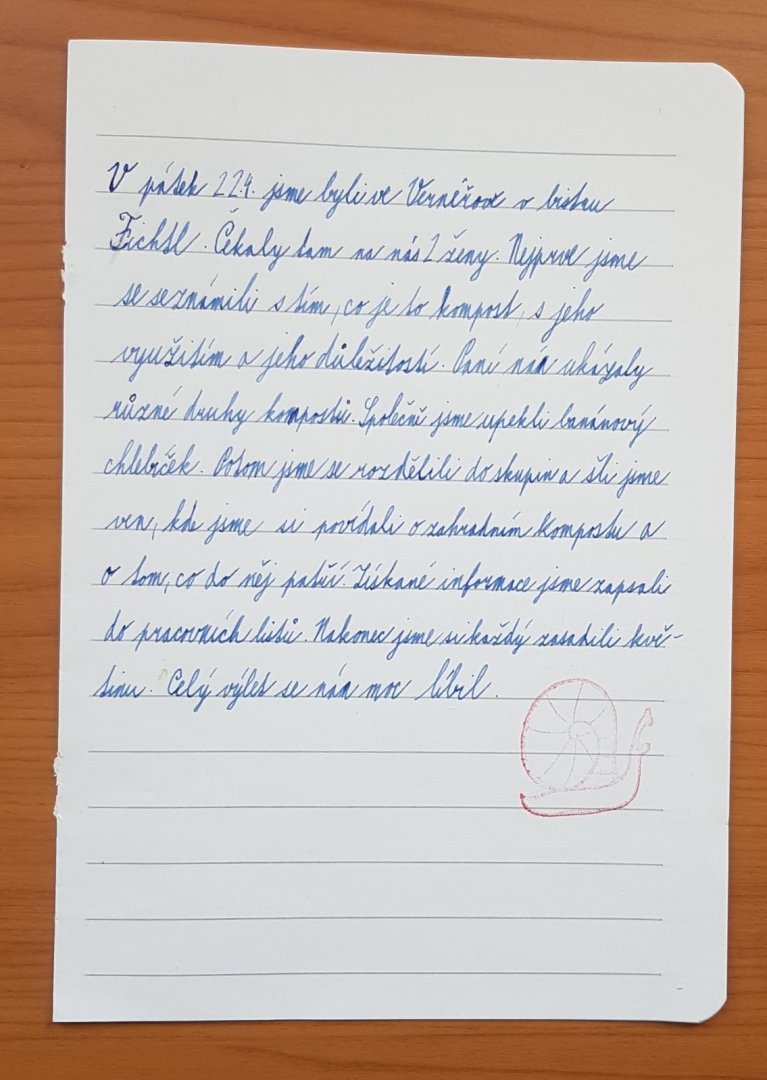 V pátek 22.4. jsme byli ve Vernéřově v bistru
Fichtl. Čekaly tam na nás 2 ženy. Nejprve jsme
se seznámili s tím, co je to kompost, s jeho
využitím a jeho důležitostí. Paní nám ukázaly
různé druhy kompostů. Společně jsme upekli banánový
chlebíček. Potom jsme se rozdělili do skupin a šli jsme
ven, kde jsme si povídali o zahradním kompostu a
o tom, co do něj patří. Získané informace jsme zapsali
do pracovních listů. Nakonec jsme si každý zasadili kvě-
tinu. Celý výlet se nám moc líbil.